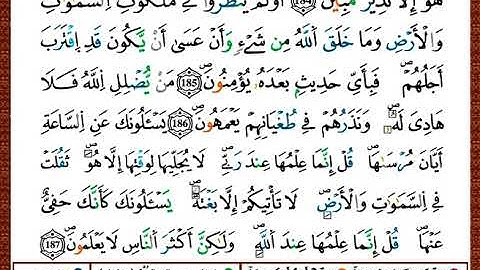 هُوَ إِلَّا نَذِيرٌ مُّبِينٌ ۝١٨٤ أَوَلَمْ يَنظُرُوا۟ فِى مَلَكُوتِ ٱلسَّمَٰوَٰتِ
وَٱلْأَرْضِ وَمَا خَلَقَ ٱللَّهُ مِن شَىْءٍ وَأَنْ عَسَىٰٓ أَن يَكُونَ قَدِ ٱقْتَرَبَ
أَجَلُهُمْ ۖ فَبِأَىِّ حَدِيثٍۭ بَعْدَهُۥ يُؤْمِنُونَ ۝١٨٥ مَن يُضْلِلِ ٱللَّهُ فَلَا
هَادِىَ لَهُۥ ۚ وَنَذَرُهُمْ فِى طُغْيَٰنِهِمْ يَعْمَهُونَ ۝١٨٦ يَسْـَٔلُونَكَ عَنِ ٱلسَّاعَةِ
أَيَّانَ مُرْسَىٰهَا ۖ قُلْ إِنَّمَا عِلْمُهَا عِندَ رَبِّى ۖ لَا يُجَلِّيهَا لِوَقْتِهَآ إِلَّا هُوَ ۚ ثَقُلَتْ
فِى ٱلسَّمَٰوَٰتِ وَٱلْأَرْضِ ۚ لَا تَأْتِيكُمْ إِلَّا بَغْتَةً ۗ يَسْـَٔلُونَكَ كَأَنَّكَ حَفِىٌّ
عَنْهَا ۖ قُلْ إِنَّمَا عِلْمُهَا عِندَ ٱللَّهِ وَلَٰكِنَّ أَكْثَرَ ٱلنَّاسِ لَا يَعْلَمُونَ ۝١٨٧